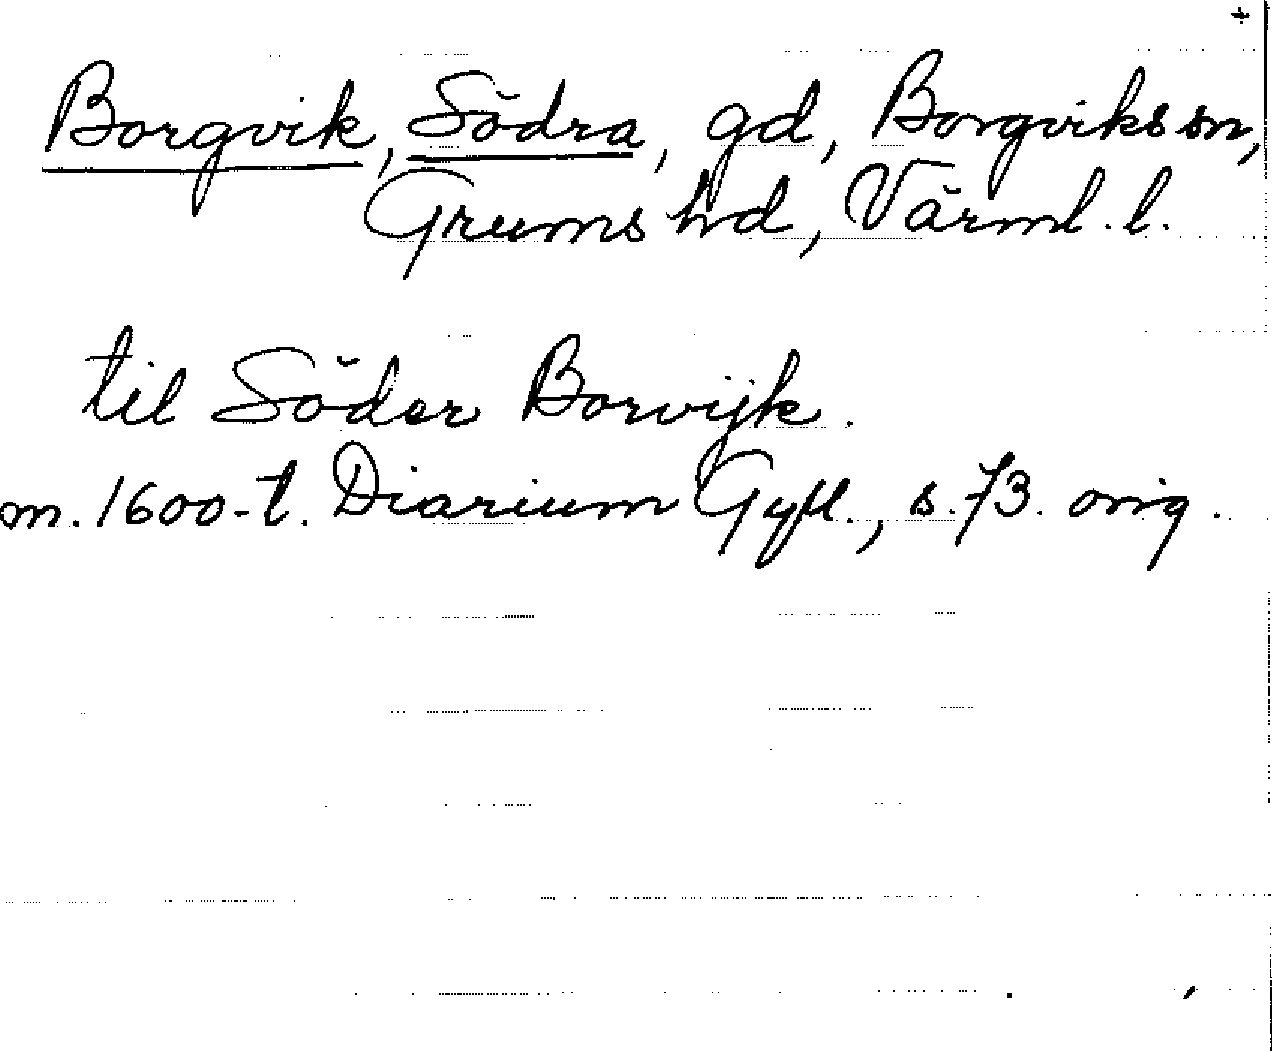 Borgvik, Södra, gd, Borgviks sn,
Grums hd, Värml. l.
til Söder Borwijk.
m. 1600-t. Diarium Gyll., s. 73. orig.